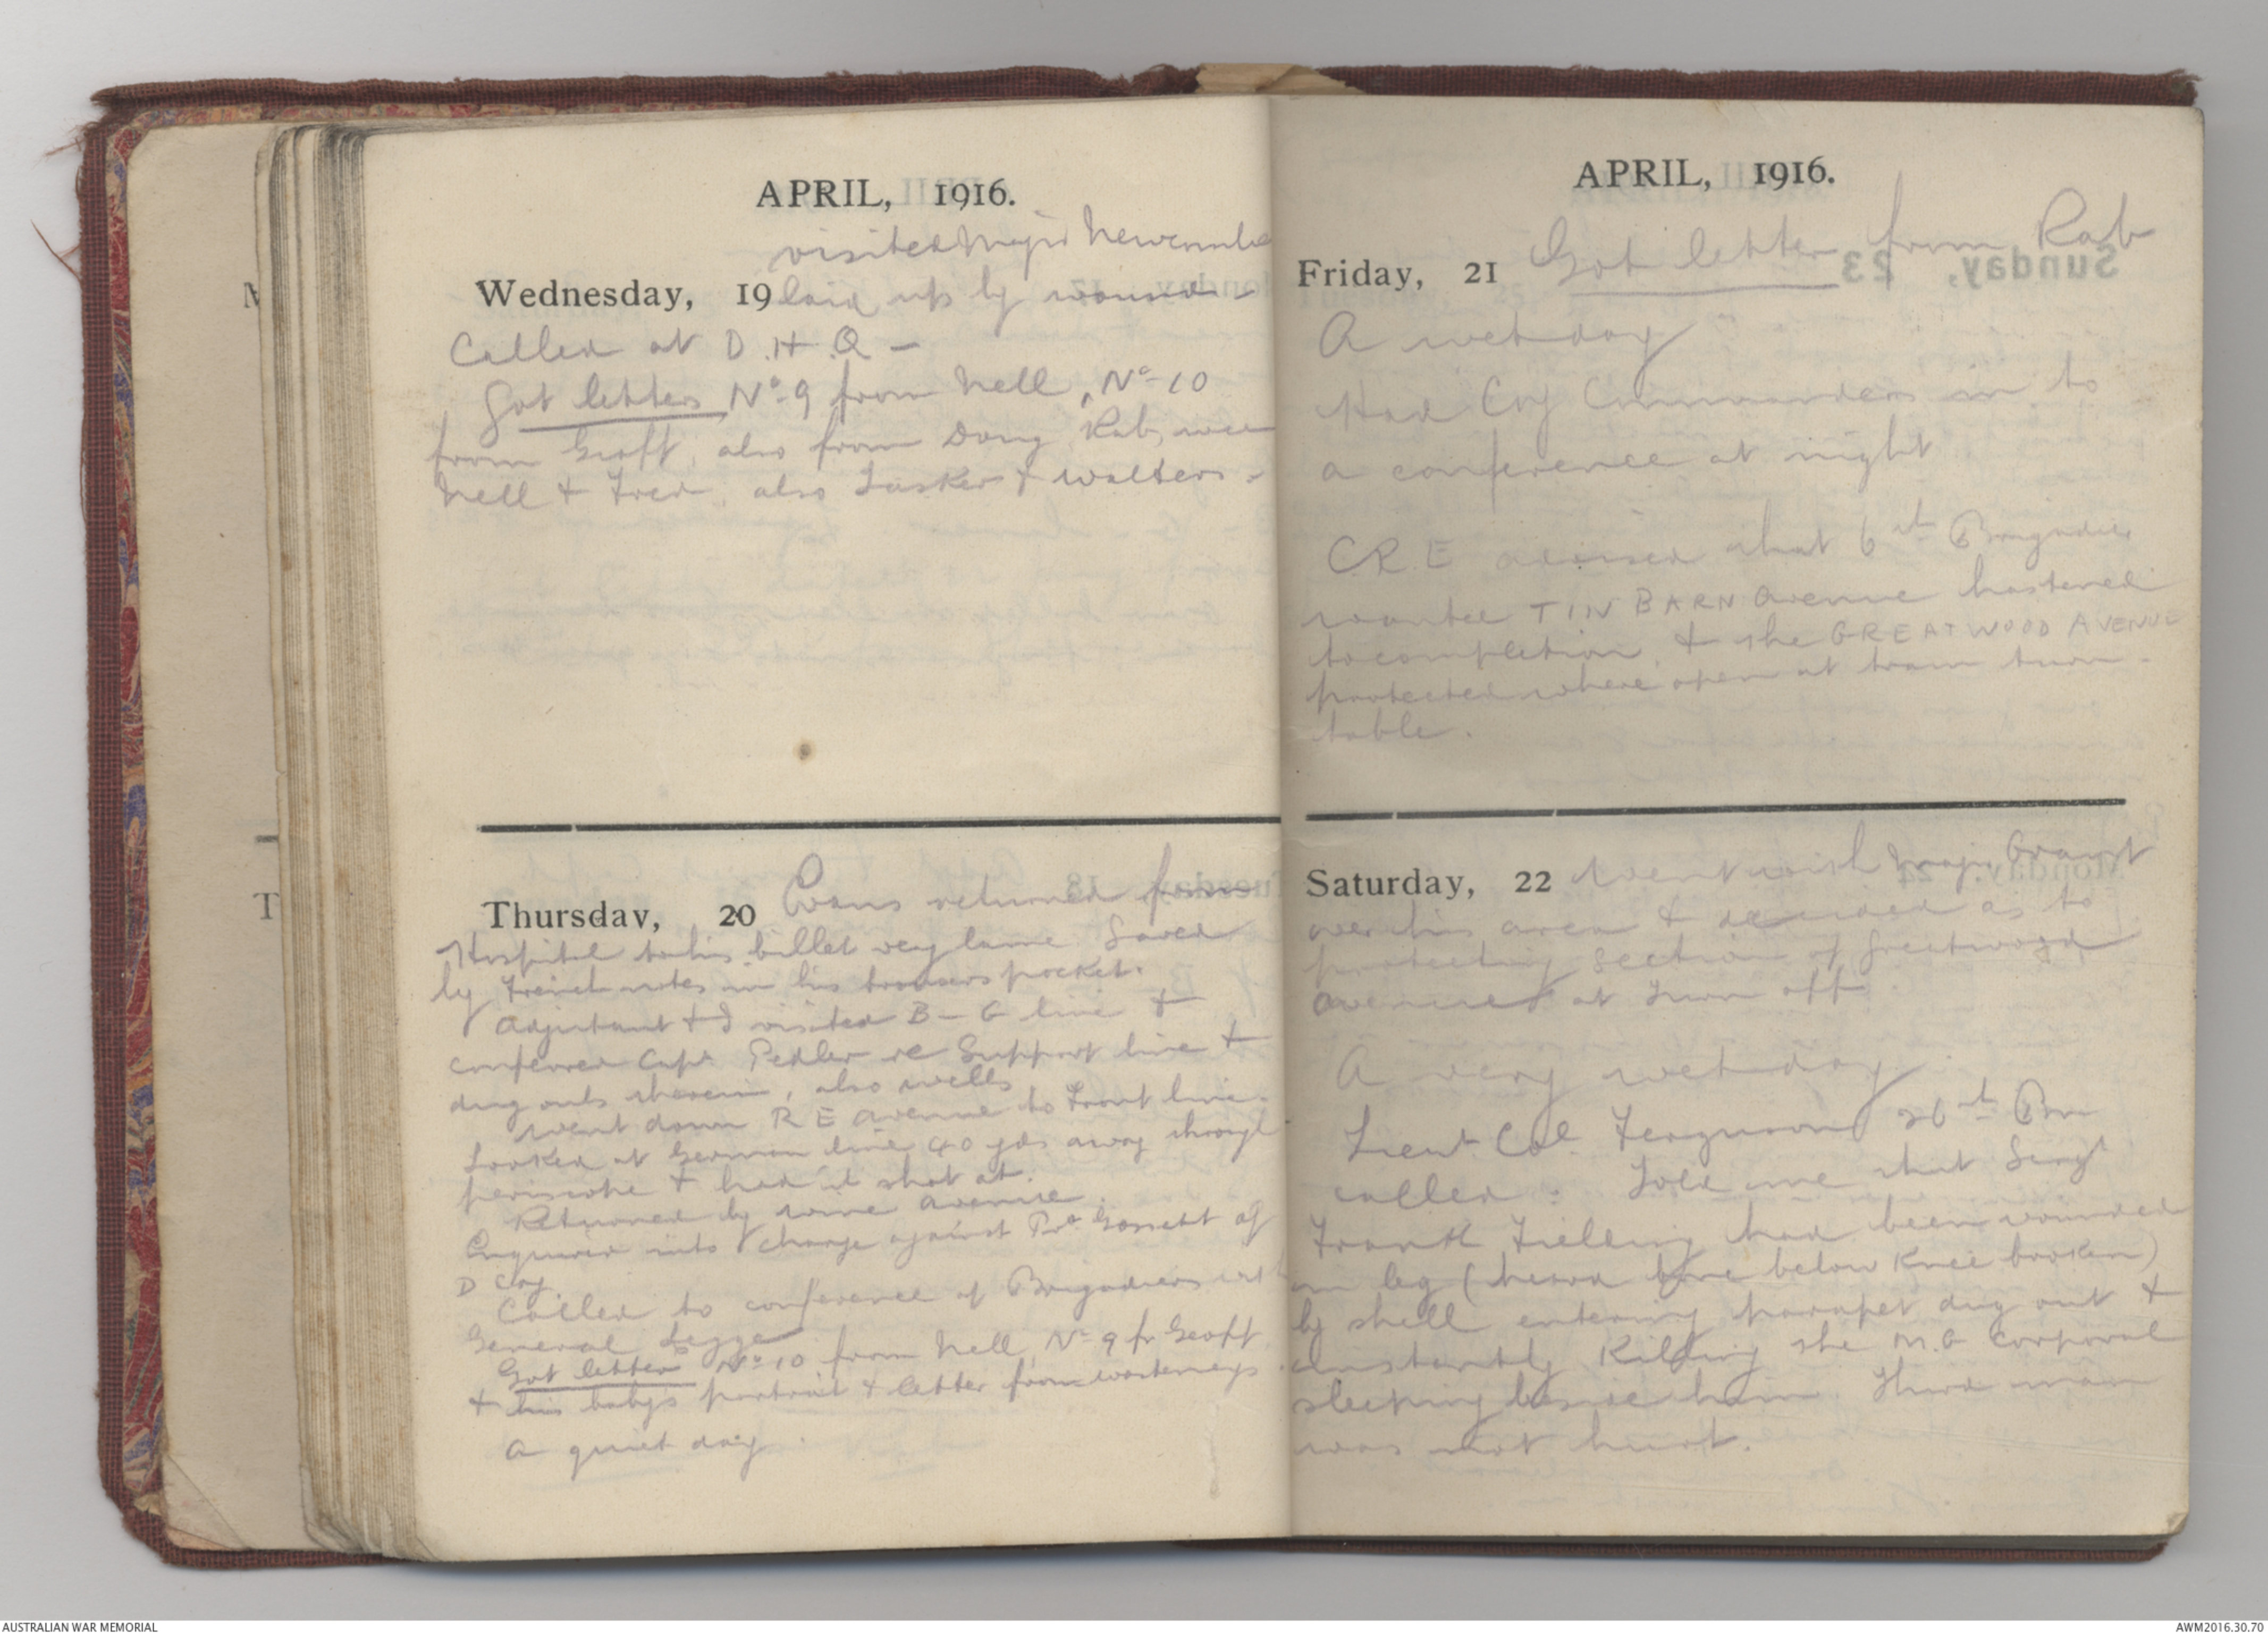 APRIL, 1916.
visited Major Newcombe
Wednesday, 19 laid up by wound -
Called at D.H.Q -
Got letters No 9 from Nell, No 10
from Geoff, also from Doug, Rab, wee
Nell & Fred, also Tasker & Walters -
Thursday, 20 Evans returned from
Hospital to his billet very lame. Saved
by French notes in his trousers pocket.
Adjutant & I visited B - G line &
conferred Capt Pedler re Support line &
dug outs therein, also wells
Went down R E avenue to Front line.
Looked at German line 40 yds away through
periscope & had it shot at.
Returned by wine avenue.
Enquired into charge against Pte Gossett of
D Coy
Called to conference of Brigadiers with
General Legge
Got letter No 10 from Nell, No 9 fr Geoff
& his baby's portrait & letter from
A quiet day.
APRIL, 1916.
Friday, 21 Got letter from Rab
A wet day
Had Coy Commanders in to
a conference at night
C.R.E advised that 6th Brigadier
wanted TIN BARN Avenue hastened
to completion, & the GREATWOOD AVENUE
protected where open at tram turn-
table.
Saturday, 22 Went with Major Grant
over his area & decided as to
protecting section of Greatwood
avenue at turn off.
A very wet day.
Lieut Col. Ferguson 20th Bn
called. Told me that Sergt
Frank Fielding had been wounded
in leg (heard bone below knee broken)
by shell entering parapet dug out &
instantly killing the M.G Corporal
sleeping beside him. Third man
was not hurt.
Sunday, 23
AUSTRALIAN WAR MEMORIAL
AWM2016.30.70